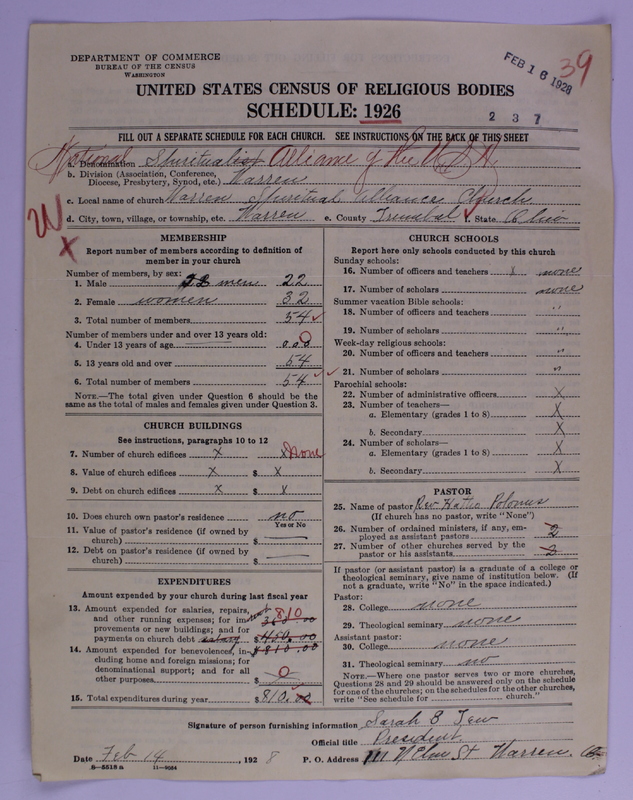 DEPARTMENT OF COMMERCE
BUREAU OF THE CENSUS
WASHINGTON
FEB 16 1928
39
UNITED STATES CENSUS OF RELIGIOUS BODIES
SCHEDULE: 1926
2 3 7
FILL OUT A SEPARATE SCHEDULE FOR EACH CHURCH. SEE INSTRUCTIONS ON THE BACK OF THIS SHEET
National Spiritualist Alliance of the U.S.A
a. Denomination
b. Division (Association, Conference, Diocese, Presbytery, Synod, etc.) Warren
c. Local name of church Warren Spiritual Alliance Church
d. City, town, village, or township, etc. Warren e. County Trumbal f. State Ohio
W
X
MEMBERSHIP
Report number of members according to definition of
member in your church
Number of members, by sex:
1. Male 22 men 22
2. Female women 32
3. Total number of members 54
Number of members under and over 13 years old:
4. Under 13 years of age 0
5. 13 years old and over 54
6. Total number of members 54
NOTE.—The total given under Question 6 should be
same as the total of males and females given under Question 3.
CHURCH BUILDINGS
See instructions, paragraphs 10 to 12
7. Number of church edifices X X None
8. Value of church edifices X $ X
9. Debt on church edifices X $ X
10. Does church own pastor's residence no
Yes or No
11. Value of pastor's residence (if owned by
church) $
12. Debt on pastor's residence (if owned by
church) $
EXPENDITURES
Amount expended by your church during last fiscal year
13. Amount expended for salaries, repairs,
and other running expenses; for im-
provements or new buildings; and for
payments on church debt salary
810
$450.00
14. Amount expended for benevolences, in-
cluding home and foreign missions; for
denominational support; and for all
other purposes
$810.00
$ 0
15. Total expenditures during year $810.00
CHURCH SCHOOLS
Report here only schools conducted by this church
Sunday schools:
16. Number of officers and teachers x none
17. Number of scholars none
Summer vacation Bible schools:
18. Number of officers and teachers "
19. Number of scholars "
Week-day religious schools:
20. Number of officers and teachers "
21. Number of scholars "
Parochial schools:
22. Number of administrative officers X
23. Number of teachers—
a. Elementary (grades 1 to 8) X
b. Secondary X
24. Number of scholars—
a. Elementary (grades 1 to 8) X
b. Secondary X
PASTOR
25. Name of pastor Rev Hattie Polonus
(If church has no pastor, write "None")
26. Number of ordained ministers, if any, em-
ployed as assistant pastors 2
27. Number of other churches served by the
pastor or his assistants 2
If pastor (or assistant pastor) is a graduate of a college or
theological seminary, give name of institution below. (If
not a graduate, write "No" in the space indicated.)
Pastor:
28. College none
29. Theological seminary none
Assistant pastor:
30. College none
31. Theological seminary no
NOTE.—Where one pastor serves two or more churches,
Questions 28 and 29 should be answered only on the schedule
for one of the churches; on the schedules for the other churches,
write "See schedule for ______ church."
Signature of person furnishing information Sarah B Tew
Official title President
Date Feb 14, 1928 P. O. Address 111 N Elm St Warren. O
8—5518 a 11—9084